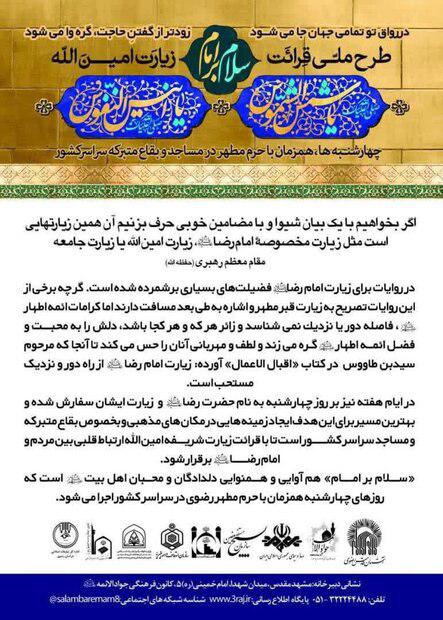 در رواق تو تمامی جهان جا می شود
زودتر از گفتن حاجت، گره وا می شود
طرح ملی قرائت
سلام بر امام
زیارت امین الله
یا شمس الشموس
یا انیس النفوس
چهارشنبه ها، همزمان با حرم مطهر در مساجد و بقاع متبرکه سراسر کشور
اگر بخواهیم با یک بیان شیوا و با مضامین خوبی حرف بزنیم آن همین زیارتهایی
است مثل زیارت مخصوصهٔ امام رضا، زیارت امین الله یا زیارت جامعه
مقام معظم رهبری (حفظه الله)
در روایات برای زیارت امام رضا فضیلت‌های بسیاری برشمرده شده است. گرچه برخی از
این روایات تصریح به زیارت قبر مطهر و اشاره به طی بعد مسافت دارند اما کرامات ائمه اطهار
، فاصله دور یا نزدیک نمی شناسد و زائر هر که و هر کجا باشد، دلش را به محبت و
فضل ائمه اطهار گره می زند و لطف و مهربانی آنان را حس می کند تا آنجا که مرحوم
سیدبن طاووس در کتاب «اقبال الاعمال» آورده: زیارت امام رضا از راه دور و نزدیک
مستحب است.
در ایام هفته نیز بر روز چهارشنبه به نام حضرت رضا و زیارت ایشان سفارش شده و
بهترین مسیر برای این هدف ایجاد زمینه هایی در مکان های مذهبی و بخصوص بقاع متبرکه
و مساجد سراسر کشور است تا با قرائت زیارت شریفه امین الله ارتباط قلبی بین مردم و
امام رضا برقرار شود.
«سلام بر امام» هم آوایی و همنوایی دلدادگان و محبان اهل بیت است که
روزهای چهارشنبه همزمان با حرم مطهر رضوی در سراسر کشور اجرا می شود.
نشانی دبیرخانه: مشهد مقدس، میدان شهدا، امام خمینی(ره)۵، کانون فرهنگی جواد الائمه
تلفن: ۳۲۲۲۴۴۸۸ - ۰۵۱ پایگاه اطلاع رسانی: www.3raj.ir شناسه شبکه های اجتماعی: @salambaremam8